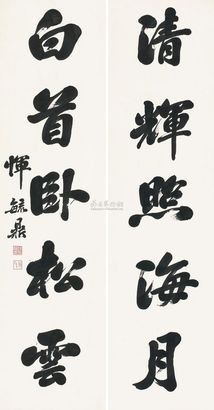 清輝照海月
白首卧松雲
惲毓鼎